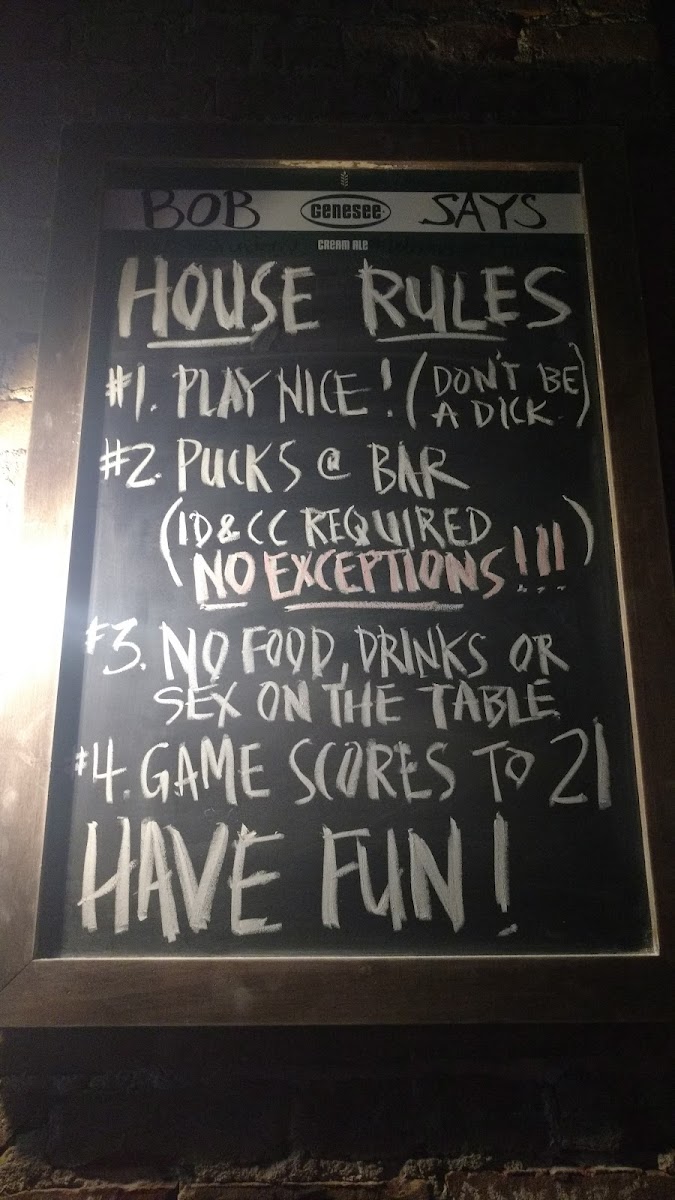 BOB GENESEE SAYS
CREAM ALE
HOUSE RULES
#1. PLAY NICE! (DON'T BE
A DICK.)
#2. PUCKS @ BAR
(ID & CC REQUIRED
NO EXCEPTIONS!!!)
#3. NO FOOD, DRINKS OR
SEX ON THE TABLE
#4. GAME SCORES TO 21
HAVE FUN!